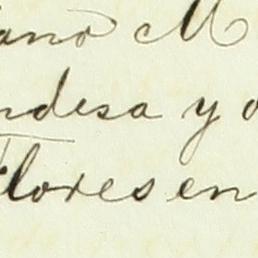 ano M
ndesa y o
Flores en